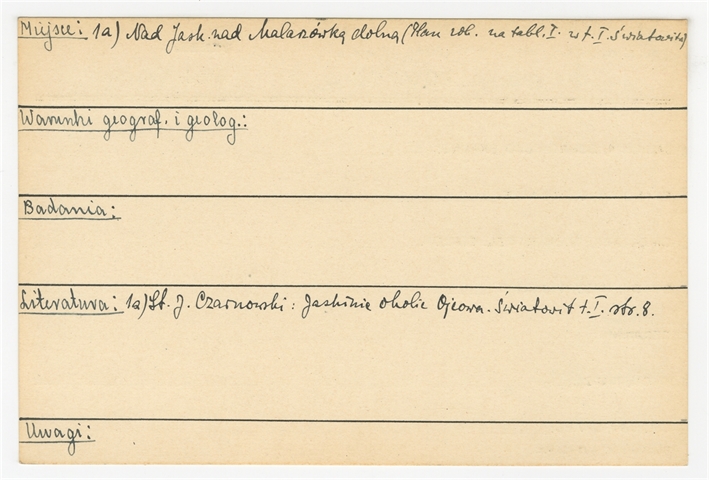 Miejsce: 1a) Nad Jask. nad Malaszówką dolną (Plan zob. na tabl. I. w t. I. Światowita)
Warunki geograf. i geolog.:
Badania:
Literatura: 1a) St. J. Czarnowski: Jaskinie okolic Ojcowa. Światowit t. I. str. 8.
Uwagi: